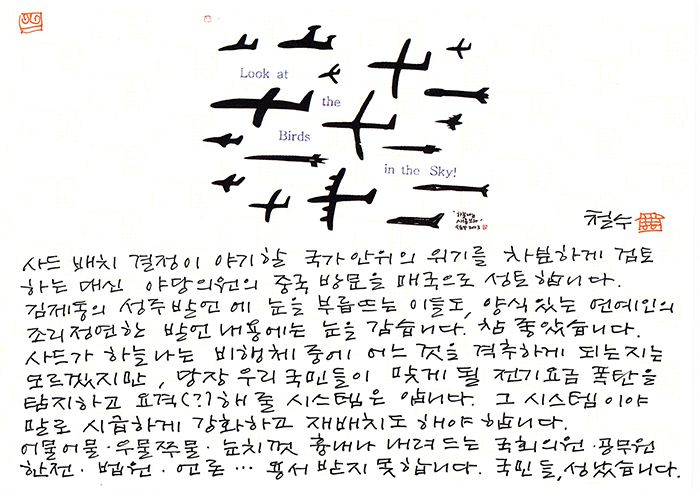 Look at
the
Birds
in the Sky!
철수
사드 배치 결정이 야기할 국가안위의 위기를 차분하게 검토
하는 대신 야당의원의 중국 방문을 매국으로 성토합니다.
김제동의 성주발언에 눈을 부릅뜨는 이들도, 양식있는 연예인의
조리정연한 발언내용에는 눈을 감습니다. 참 좋았습니다.
사드가 하늘나는 비행체 중에 어느 것을 격추하게 되는지는
모르겠지만, 당장 우리국민들이 맞게 될 전기요금 폭탄을
탐지하고 요격(?)해 줄 시스템은 압니다. 그 시스템이야
말로 시급하게 강화하고 재배치도 해야 합니다.
어물어물·우물쭈물·눈치껏 흉내나 내려드는 국회의원·공무원
한전·법원·언론··· 용서 받지 못합니다. 국민들, 성났습니다.